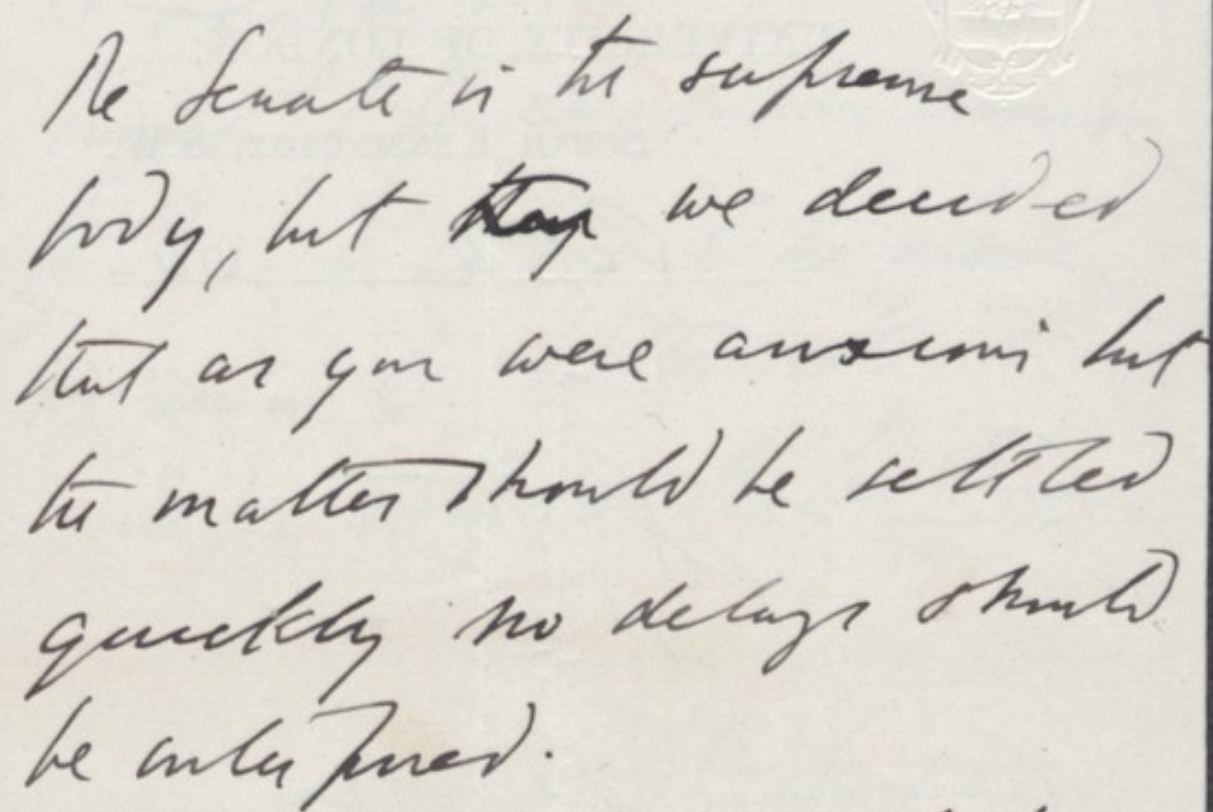 The Senate is the supreme
body, but we decided
that as you were anxious that
the matter should be settled
quickly no delays should
be interposed.